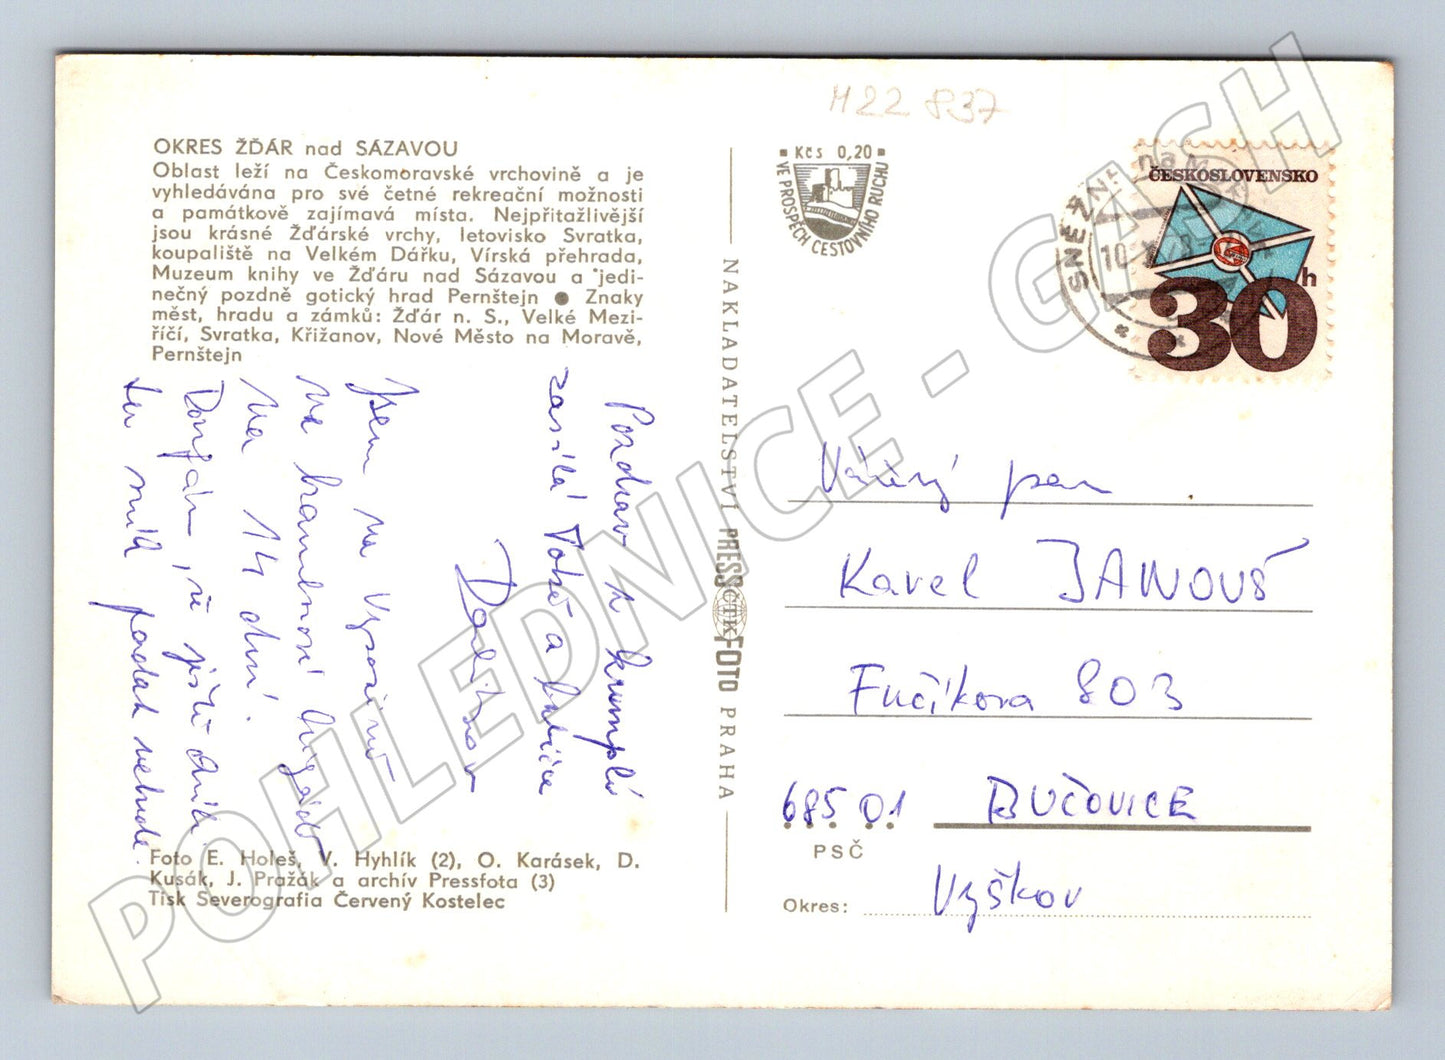 M22 837
OKRES ŽĎÁR nad SÁZAVOU
Oblast leží na Českomoravské vrchovině a je
vyhledávána pro své četné rekreační možnosti
a památkově zajímavá místa. Nejpřitažlivější
jsou krásné Žďárské vrchy, letovisko Svratka,
koupaliště na Velkém Dářku, Vírská přehrada,
Muzeum knihy ve Žďáru nad Sázavou a jedi-
nečný pozdně gotický hrad Pernštejn ● Znaky
měst, hradu a zámků: Žďár n. S., Velké Mezi-
říčí, Svratka, Křižanov, Nové Město na Moravě,
Pernštejn
Pozdrav z
zasílá Tobě a
Jsem na Vysočině
na
na 14 dní.
Doufám, že ještě
tu padat nebude.
Foto E. Holeš, V. Hyhlík (2), O. Karásek, D.
Kusák, J. Pražák a archív Pressfota (3)
Tisk Severografia Červený Kostelec
NAKLADATELSTVÍ PRESSFOTO PRAHA
ČTK
Kčs 0,20
VE PROSPĚCH CESTOVNÍHO RUCHU
SNĚŽNÉ na Mor
10.
ČESKOSLOVENSKO
30h
Vážený pan
Karel JANOUŠ
Fučíkova 803
685 01 BUČOVICE
PSČ
Okres: Vyškov
POHLEDNICE - GASH